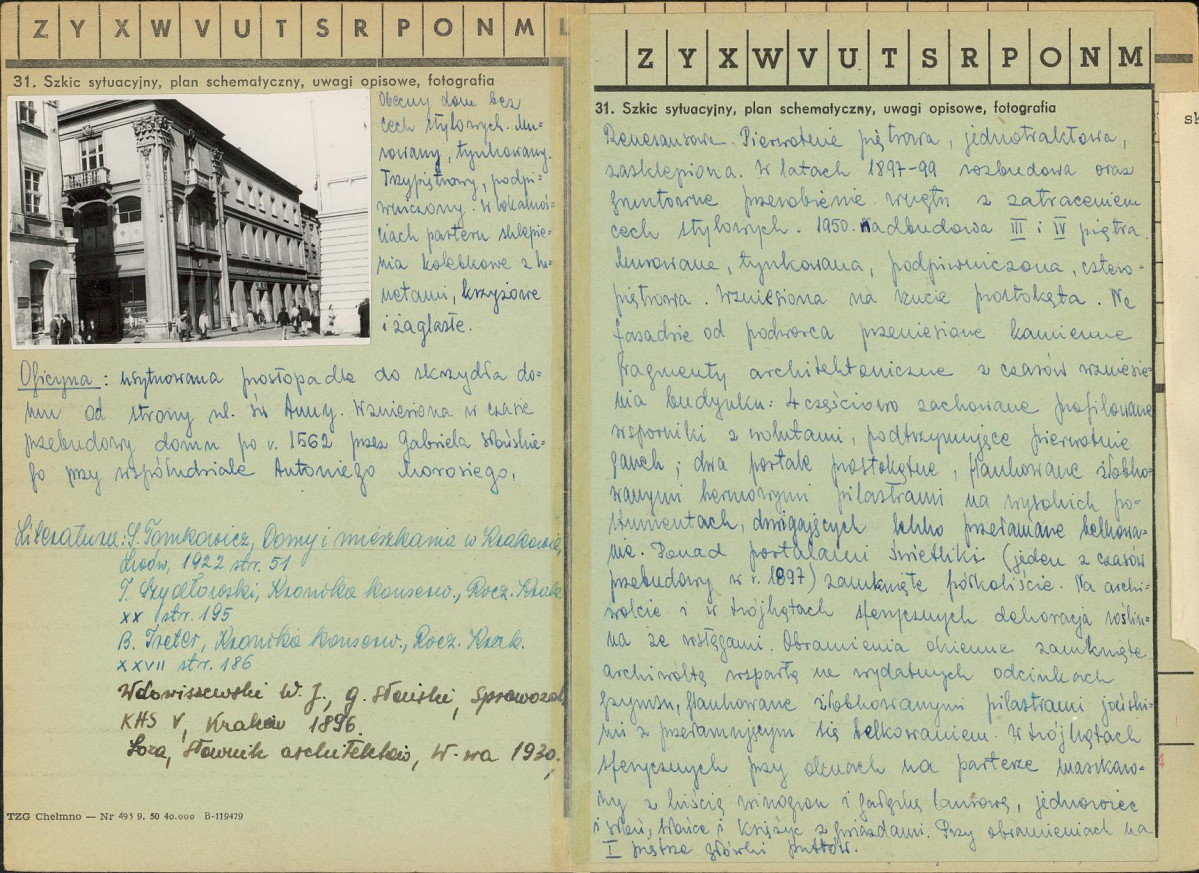 Z Y X W V U T S R P O N M L
31. Szkic sytuacyjny, plan schematyczny, uwagi opisowe, fotografia
Obecny dom bez
cech stylowych. Mu-
rowany, tynkowany.
Trzypiętrowy, podpi-
wniczony. W lokalnoś-
ciach parteru sklepie-
nia kolebkowe z lu-
netami, krzyżowe
i żaglaste.
Oficyna: usytuowana prostopadle do skrzydła do-
mu od strony ul. św Anny. Wzniesiona w czasie
przebudowy domu po r. 1562 przez Gabriela Słońskie-
go przy współudziale Antoniego Morosiego.
Literatura: S. Tomkowicz, Domy i mieszkania w Krakowie,
Lwów, 1922 str. 51
T. Szydłowski, Kronika konserw., Rocz. Krak
XX str. 195
B. Treter, Kronika konserw., Rocz. Krak.
XXVII str. 186
Wdowiszewski W. J., G. Słoński, Sprawozd
KHS V, Kraków 1896.
Łoza, Słownik architektów, W-wa 1930.
TZG Chełmno — Nr 495 9. 50 40.000 B-119479
Z Y X W V U T S R P O N M
31. Szkic sytuacyjny, plan schematyczny, uwagi opisowe, fotografia
Renesansowa. Pierwotnie piętrowa, jednotraktowa,
zasklepiona. W latach 1897-99 rozbudowa oraz
gruntowne przerobienie wnętrz z zatraceniem
cech stylowych. 1950. Nadbudowa III i IV piętra.
Murowana, tynkowana, podpiwniczona, cztero-
piętrowa. Wzniesiona na rzucie prostokąta. Na
fasadzie od podwórca przeniesione kamienne
fragmenty architektoniczne z czasów wzniesie-
nia budynku: 4 częściowo zachowane profilowane
wsporniki z wolutami, podtrzymujące pierwotnie
ganek; dwa portale prostokątne, flankowane żłobko-
wanymi hermowymi pilastrami na wysokich po-
stumentach, dźwigających lekko przełamane belkowa-
nie. Ponad portalami świetliki (jeden z czasów
przebudowy w r. 1897) zamknięte półkoliście. Na archi-
wolcie i w trójkątach sferycznych dekoracja roślin-
na ze wstęgami. Obramienia okienne zamknięte
archiwoltą wspartą na wydatnych odcinkach
gzymsu, flankowane żłobkowanymi pilastrami joński-
mi z przełamującym się belkowaniem. W trójkątach
sferycznych przy oknach na parterze maszkaro-
ny z kiścią winogron i gałązką laurową, jednorożec
i słońce i Księżyc z gwiazdami. Przy obramieniach na
I piętrze główki puttów.